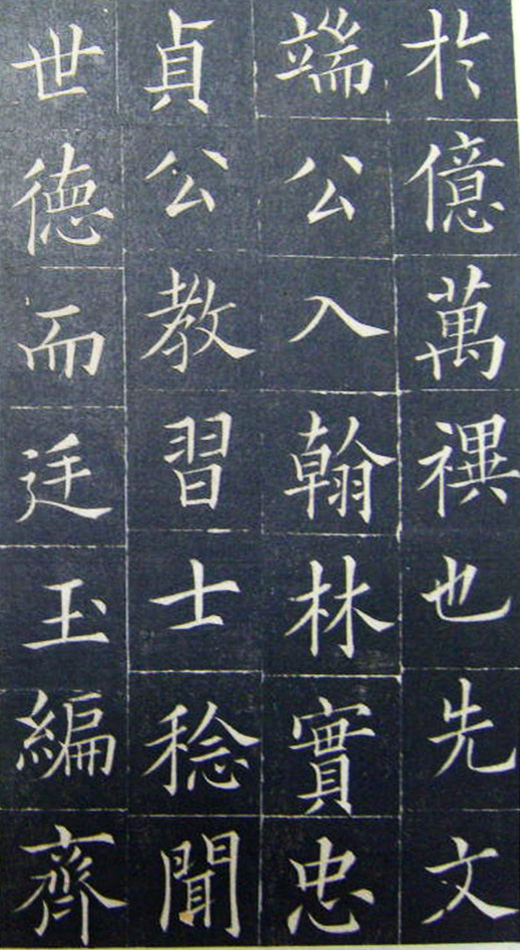 於億萬禩也先文
端公入翰林實忠
貞公教習士稔聞
世德而廷玉編齊